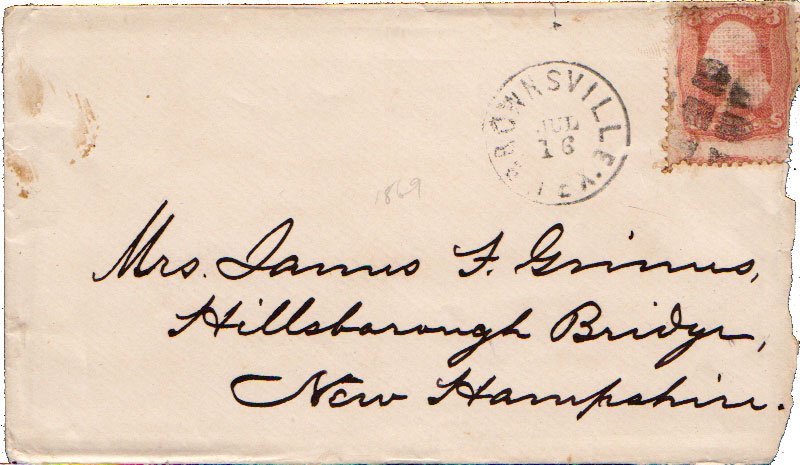 BROWNSVILLE. TEX.
JUL
16
3 3
1869
Mrs. James F. Grimes,
Hillsborough Bridge,
New Hampshire.